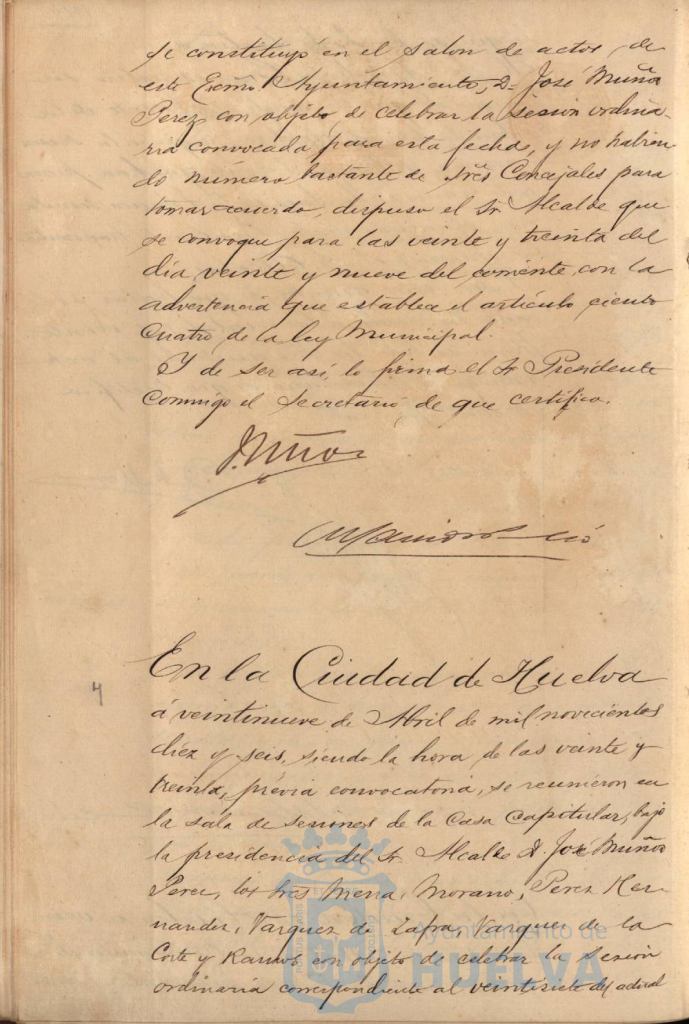 se constituyó en el salon de actos, de
este Excmo Ayuntamiento, D. José Muñoz
Perez con objeto de celebrar la sesion ordina-
ria convocada para esta fecha, y no habien-
do número bastante de Sres Concejales para
tomar acuerdo, dispuso el Sr Alcalde que
se convoque para las veinte y treinta del
dia veinte y nueve del corriente, con la
advertencia que establece el artículo ciento
cuatro de la ley Municipal.
Y de ser asi, lo firma el Sr Presidente
conmigo el Secretario, de que certifico.
J. Muñoz
4
En la Ciudad de Huelva
á veintinueve de Abril de mil novecientos
diez y seis, siendo la hora de las veinte y
treinta, prévia convocatoria, se reunieron en
la sala de sesiones de la Casa Capitular, bajo
la presidencia del Sr. Alcalde D. José Muñoz
Perez, los Sres Mora, Morano, Perez Her-
nandez, Vazquez de Zafra, Vazquez de la
Corte y Ramos con objeto de celebrar la sesión
ordinaria correspondiente al veintisiete del actual
Ayuntamiento de
HUELVA